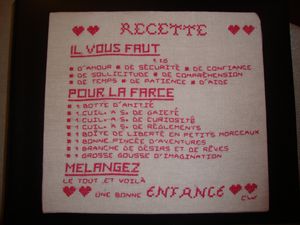 RECETTE
IL VOUS FAUT
1 KG
* D'AMOUR * DE SÉCURITÉ * DE CONFIANCE
* DE SOLLICITUDE * DE COMPRÉHENSION
* DE TEMPS * DE PATIENCE * D'AIDE
POUR LA FARCE
* 1 BOTTE D'AMITIÉ
* 1 CUIL. À S. DE GAIETÉ
* 1 CUIL. À S. DE CURIOSITÉ
* 1 CUIL. À S. DE RÈGLEMENTS
* 1 BOÎTE DE LIBERTÉ EN PETITS MORCEAUX
* 1 BONNE PINCÉE D'AVENTURES
* 1 BRANCHE DE DÉSIRS ET DE RÊVES
* 1 GROSSE GOUSSE D'IMAGINATION
MELANGEZ
LE TOUT ET VOILÀ
UNE BONNE ENFANCE
CW